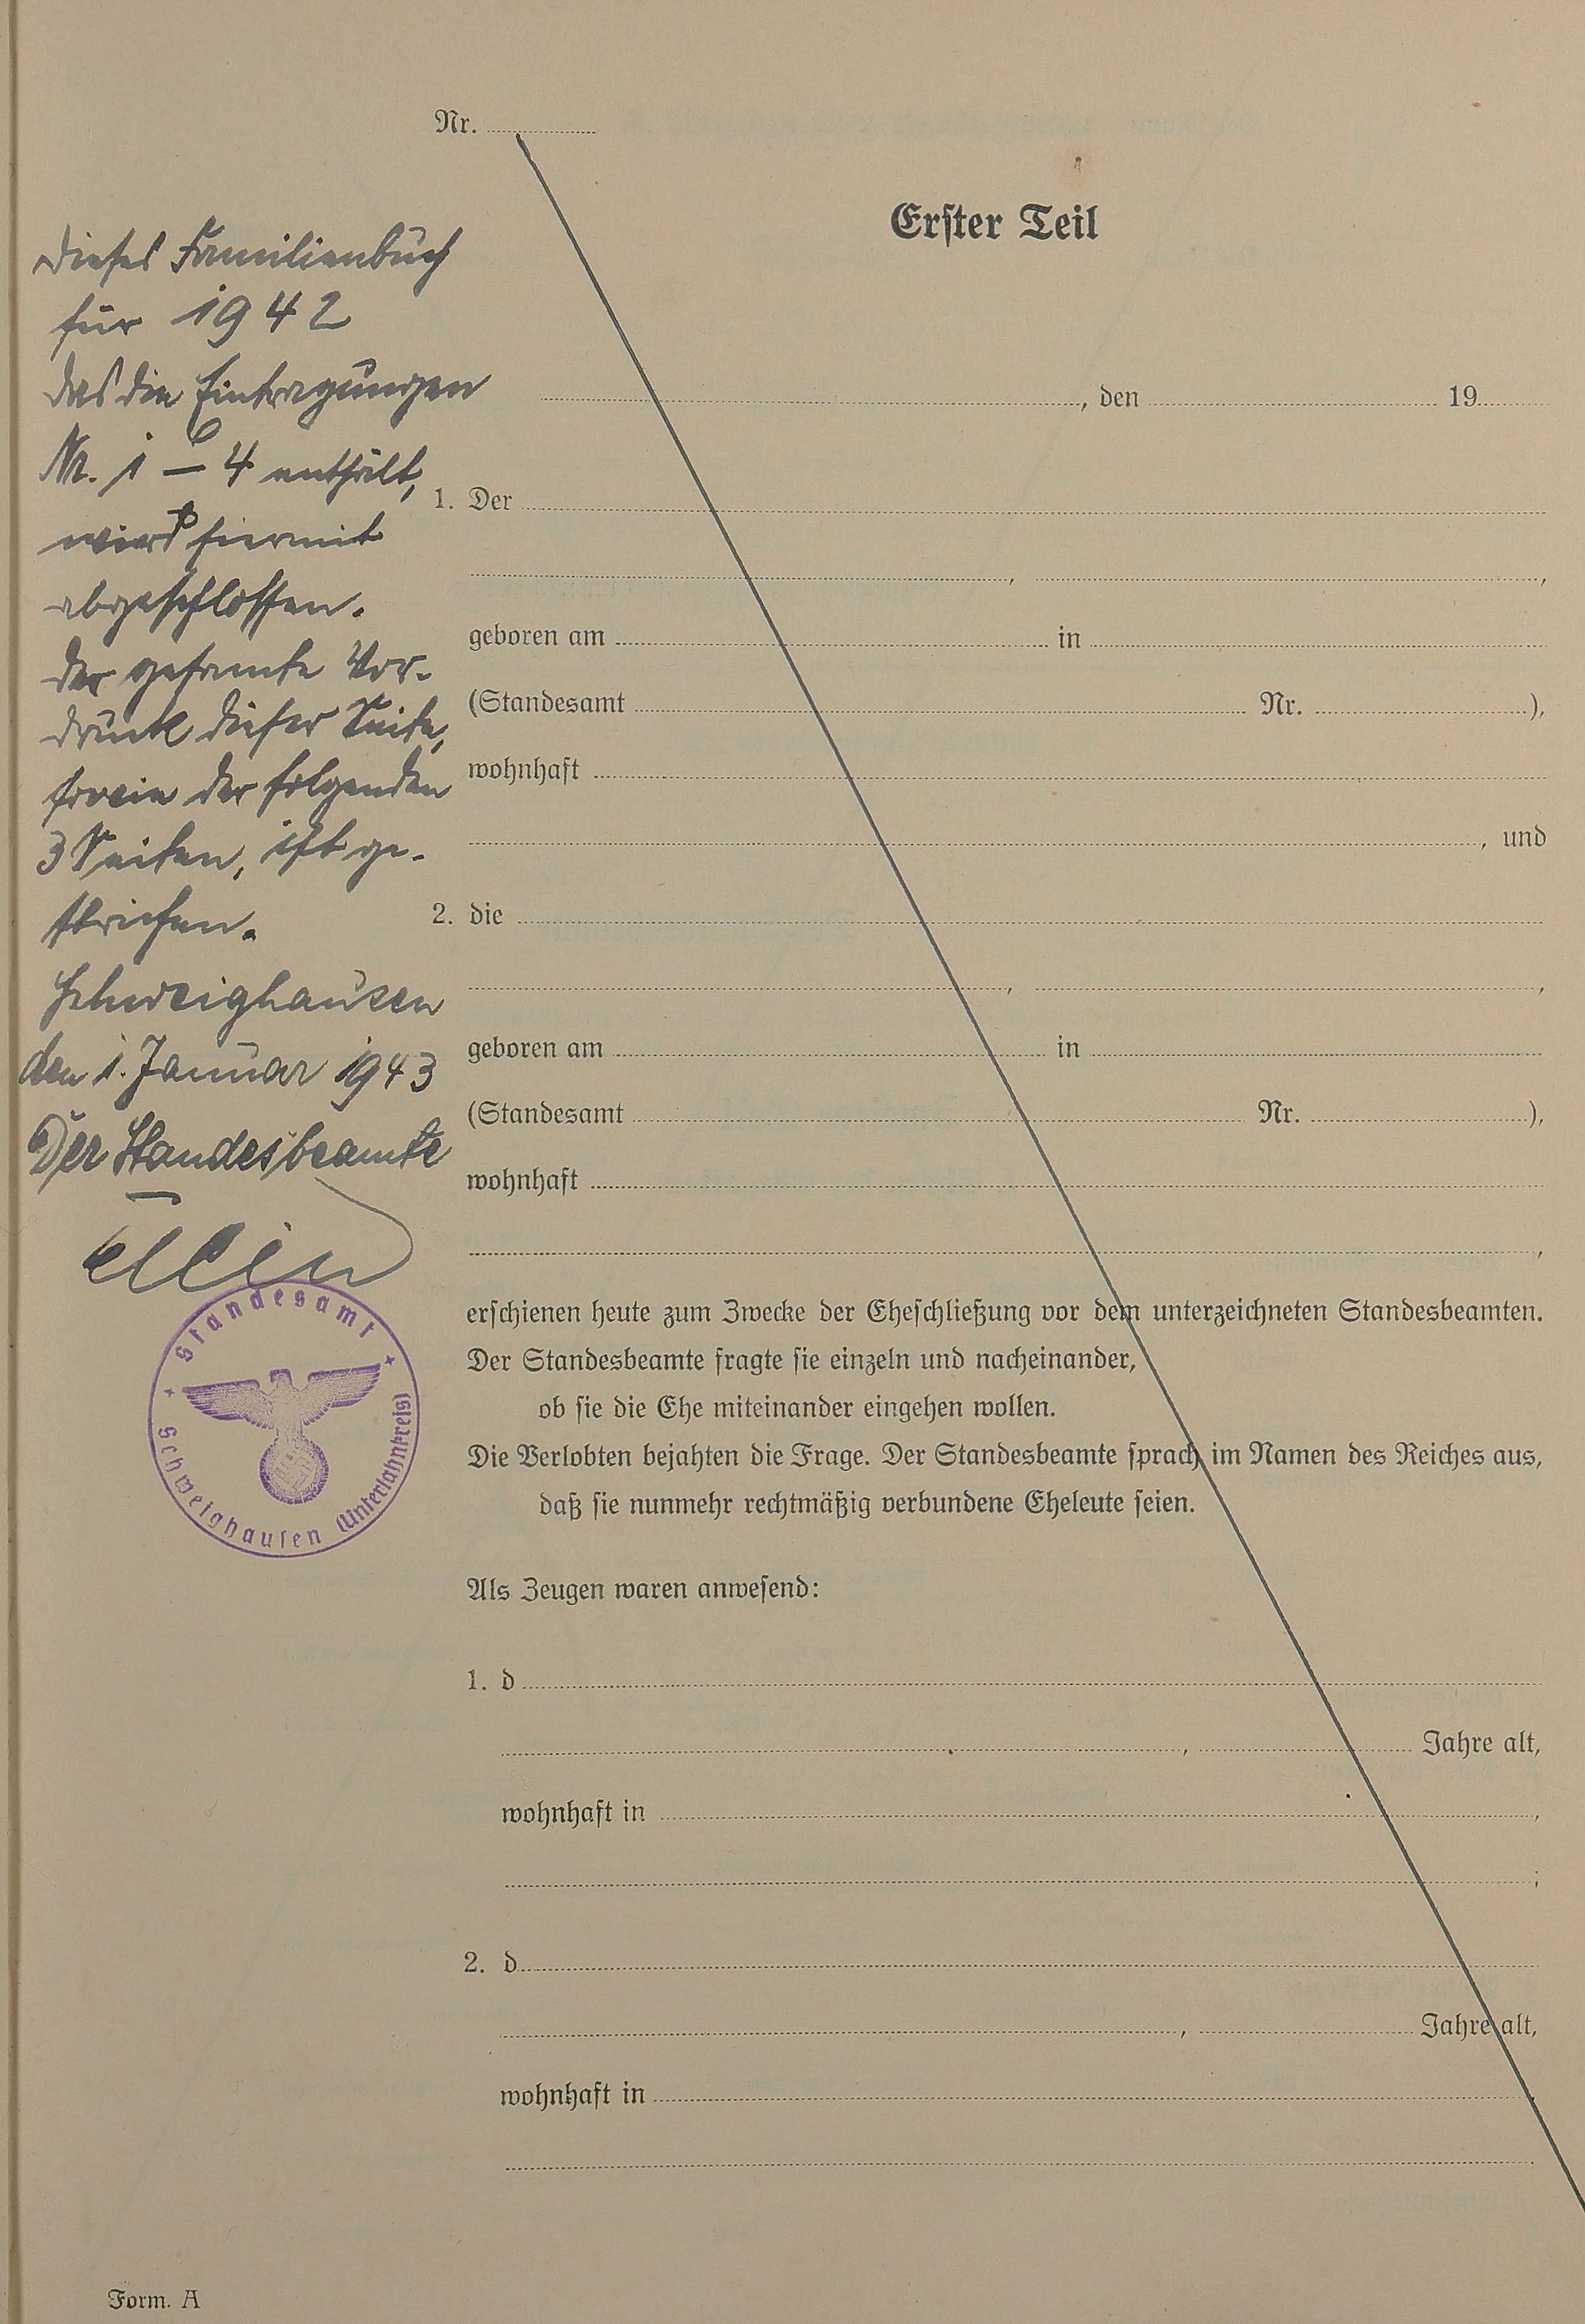 Nr.
Erster Teil
Dieses Familienbuch
für 1942
das die Eintragungen
Nr. 1 – 4 enthält,
wird hiermit
abgeschlossen.
Der gesamte Vor-
druck dieser Seite,
sowie der folgenden
3 Seiten, ist ge-
strichen.
Schweighausen
den 1. Januar 1943
Der Standesbeamte
Standesamt
Schweighausen (Unterlahnkreis)
, den 19
1. Der
, ,
geboren am in
(Standesamt Nr. ),
wohnhaft
, und
2. die
, ,
geboren am in
(Standesamt Nr. ),
wohnhaft
,
erschienen heute zum Zwecke der Eheschließung vor dem unterzeichneten Standesbeamten.
Der Standesbeamte fragte sie einzeln und nacheinander,
ob sie die Ehe miteinander eingehen wollen.
Die Verlobten bejahten die Frage. Der Standesbeamte sprach im Namen des Reiches aus,
daß sie nunmehr rechtmäßig verbundene Eheleute seien.
Als Zeugen waren anwesend:
1. d
, Jahre alt,
wohnhaft in ,
;
2. d
, Jahre alt,
wohnhaft in ,
.
Form. A